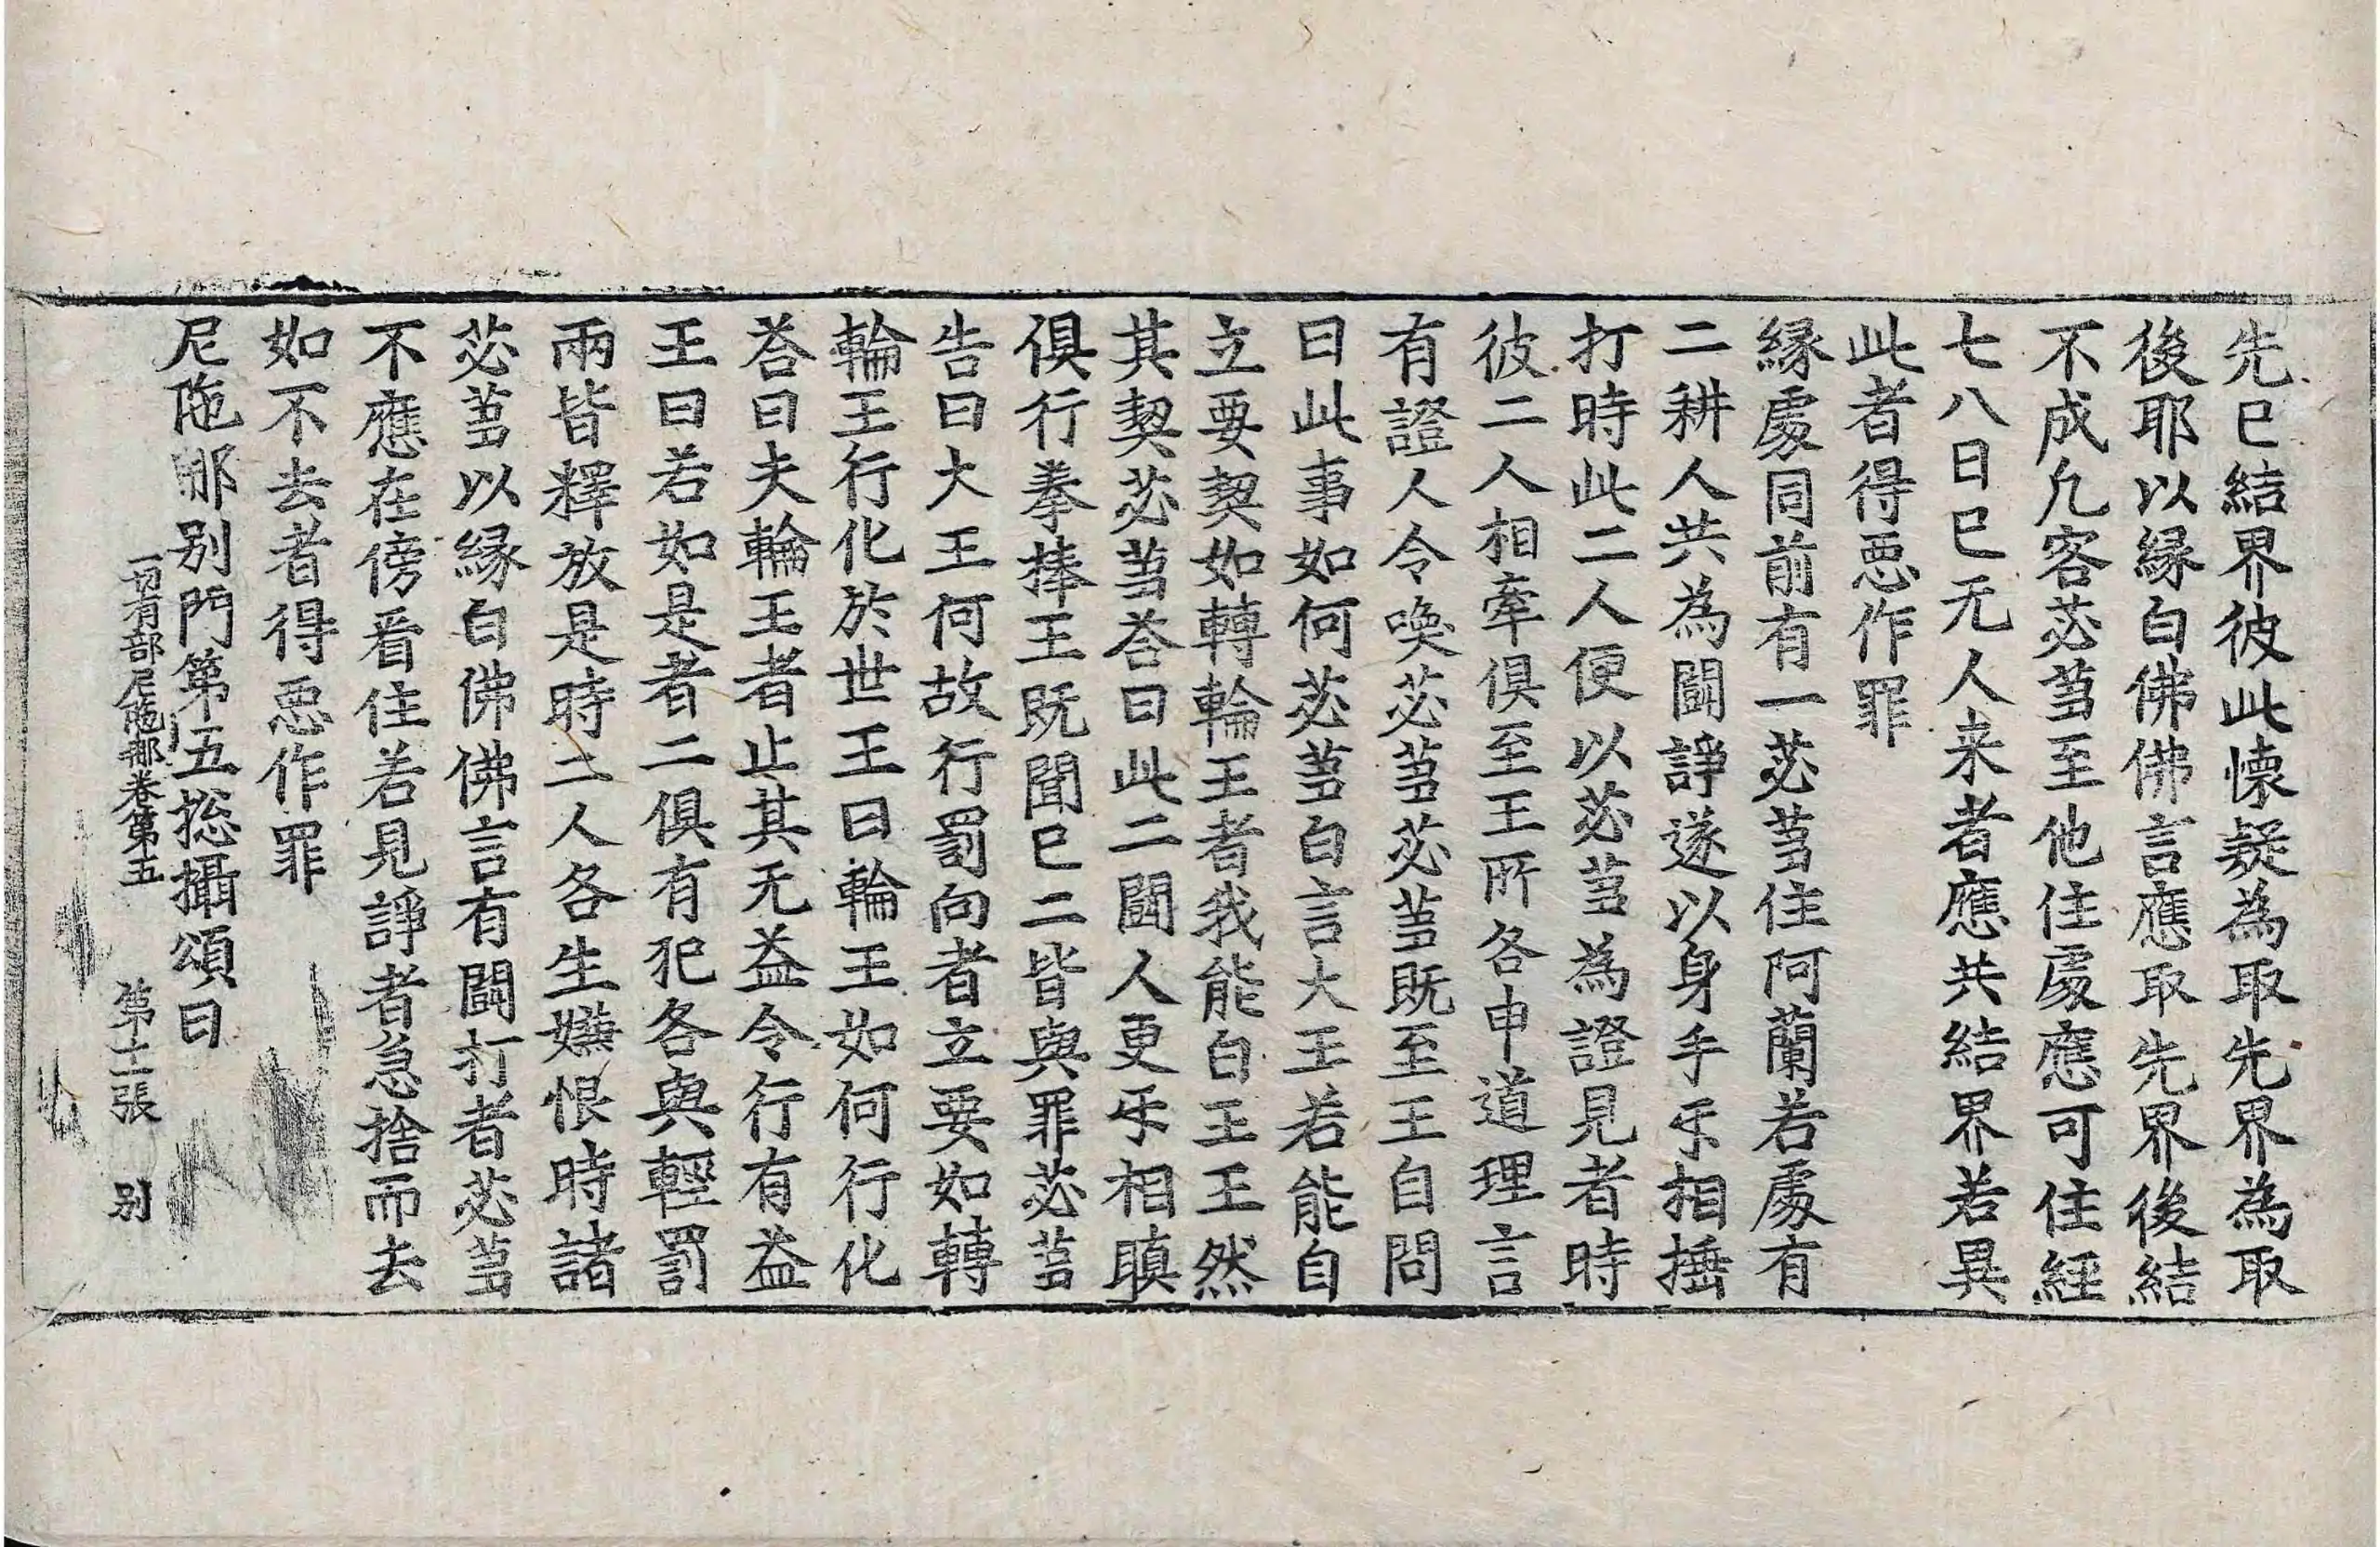 先已結界彼此懷疑為取先界為取
後耶以緣白佛佛言應取先界後結
不成凢客苾蒭至他住處應可住經
七八日已无人来者應共結界若異
此者得惡作罪
緣處同前有一苾蒭住阿蘭若處有
二耕人共為鬪諍遂以身手㸦相捶
打時此二人便以苾蒭為證見者時
彼二人相牽俱至王所各申道理言
有證人令喚苾蒭苾蒭既至王自問
曰此事如何苾蒭白言大王若能自
立要契如轉輪王者我能白王王然
其契苾蒭荅曰此二鬪人更㸦相瞋
俱行拳捧王既聞已二皆與罪苾蒭
告曰大王何故行罰向者立要如轉
輪王行化於世王曰輪王如何行化
荅曰夫輪王者止其无益令行有益
王曰若如是者二俱有犯各與輕罰
兩皆釋放是時二人各生嫌恨時諸
苾蒭以緣白佛佛言有鬪打者苾蒭
不應在傍看住若見諍者急捨而去
如不去者得惡作罪
尼陁那别門第五捴攝頌曰
一切有部尼陁那卷第五 第十二張 别